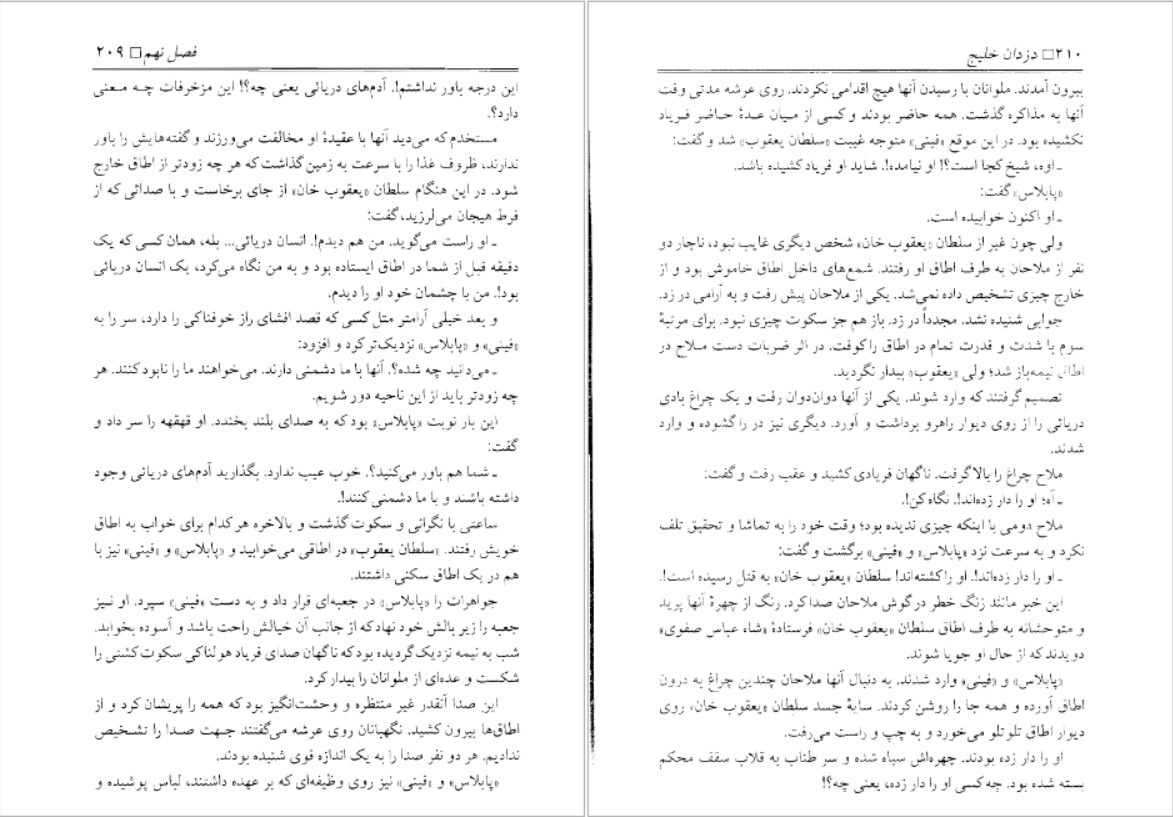 فصل نهم □ ۲۰۹
این درجه باور نداشتم!. آدم‌های دریائی یعنی چه؟! این مزخرفات چـه مـعنی
دارد؟.
مستخدم که می‌دید آنها با عقیدهٔ او مخالفت می‌ورزند و گفته‌هایش را باور
ندارند، ظروف غذا را با سرعت به زمین گذاشت که هر چه زودتر از اطاق خارج
شود. در این هنگام سلطان «یعقوب خان» از جای برخاست و با صدائی که از
فرط هیجان می‌لرزید، گفت:
ـ او راست می‌گوید. من هم دیدم!. انسان دریائی... بله، همان کسی که یک
دقیقه قبل از شما در اطاق ایستاده بود و به من نگاه می‌کرد، یک انسان دریائی
بود!. من با چشمان خود او را دیدم.
و بعد خیلی آرامتر مثل کسی که قصد افشای راز خوفناکی را دارد، سر را به
«فینی» و «پابلاس» نزدیک‌تر کرد و افزود:
ـ می‌دانید چه شده؟. آنها با ما دشمنی دارند. می‌خواهند ما را نابود کنند. هر
چه زودتر باید از این ناحیه دور شویم.
این بار نوبت «پابلاس» بود که به صدای بلند بخندد. او قهقهه را سر داد و
گفت:
ـ شما هم باور می‌کنید؟. خوب عیب ندارد. بگذارید آدم‌های دریائی وجود
داشته باشند و با ما دشمنی کنند!.
ساعتی با نگرانی و سکوت گذشت و بالاخره هر کدام برای خواب به اطاق
خویش رفتند. «سلطان یعقوب» در اطاقی می‌خوابید و «پابلاس» و «فینی» نیز با
هم در یک اطاق سکنی داشتند.
جواهرات را «پابلاس» در جعبه‌ای قرار داد و به دست «فینی» سپرد. او نـیز
جعبه را زیر بالش خود نهاد که از جانب آن خیالش راحت باشد و آسوده بخوابد.
شب به نیمه نزدیک گردیده بود که ناگهان صدای فریاد هولناکی سکوت کشتی را
شکست و عده‌ای از ملوانان را بیدار کرد.
این صدا آنقدر غیر منتظره و وحشت‌انگیز بود که همه را پریشان کرد و از
اطاق‌ها بیرون کشید. نگهبانان روی عرشه می‌گفتند جـهت صـدا را تشـخیص
ندادیم. هر دو نفر صدا را به یک اندازه قوی شنیده بودند.
«پابلاس» و «فینی» نیز روی وظیفه‌ای که بر عهده داشتند، لباس پوشیده و
۲۱۰ □ دزدان خلیج
بیرون آمدند. ملوانان با رسیدن آنها هیچ اقدامی نکردند. روی عرشه مدتی وقت
آنها به مذاکره گذشت. همه حاضر بودند و کسی از مـیان عـدهٔ حـاضر فـریاد
نکشیده بود. در این موقع «فینی» متوجه غیبت «سلطان یعقوب» شد و گفت:
ـ اوه، شیخ کجا است؟! او نیامده!. شاید او فریاد کشیده باشد.
«پابلاس» گفت:
ـ او اکنون خوابیده است.
ولی چون غیر از سلطان «یعقوب خان» شخص دیگری غایب نبود، ناچار دو
نفر از ملاحان به طرف اطاق او رفتند. شمع‌های داخل اطاق خاموش بود و از
خارج چیزی تشخیص داده نمی‌شد. یکی از ملاحان پیش رفت و به آرامی در زد.
جوابی شنیده نشد. مجدداً در زد. باز هم جز سکوت چیزی نبود. برای مرتبهٔ
سوم با شدت و قدرت تمام در اطاق را کوفت. در اثر ضربات دست مـلاح در
اطاق نیمه‌باز شد؛ ولی «یعقوب» بیدار نگردید.
تصمیم گرفتند که وارد شوند. یکی از آنها دوان‌دوان رفت و یک چراغ بادی
دریائی را از روی دیوار راهرو برداشت و آورد. دیگری نیز در را گشوده و وارد
شدند.
ملاح چراغ را بالا گرفت. ناگهان فریادی کشید و عقب رفت و گفت:
ـ آه؛ او را دار زده‌اند!. نگاه کن!.
ملاح دومی با اینکه چیزی ندیده بود؛ وقت خود را به تماشا و تحقیق تلف
نکرد و به سرعت نزد «پابلاس» و «فینی» برگشت و گفت:
ـ او را دار زده‌اند!. او را کشته‌اند! سلطان «یعقوب خان» به قتل رسیده است!.
این خبر مانند زنگ خطر در گوش ملاحان صدا کرد. رنگ از چهرهٔ آنها پرید
و متوحشانه به طرف اطاق سلطان «یعقوب خان» فرستادهٔ «شاه عباس صفوی»
دویدند که از حال او جویا شوند.
«پابلاس» و «فینی» وارد شدند. به دنبال آنها ملاحان چندین چراغ به درون
اطاق آورده و همه جا را روشن کردند. سایهٔ جسد سلطان «یعقوب خان» روی
دیوار اطاق تلوتلو می‌خورد و به چپ و راست می‌رفت.
او را دار زده بودند. چهره‌اش سیاه شده و سر طناب به قلاب سقف محکم
بسته شده بود. چه کسی او را دار زده، یعنی چه؟!